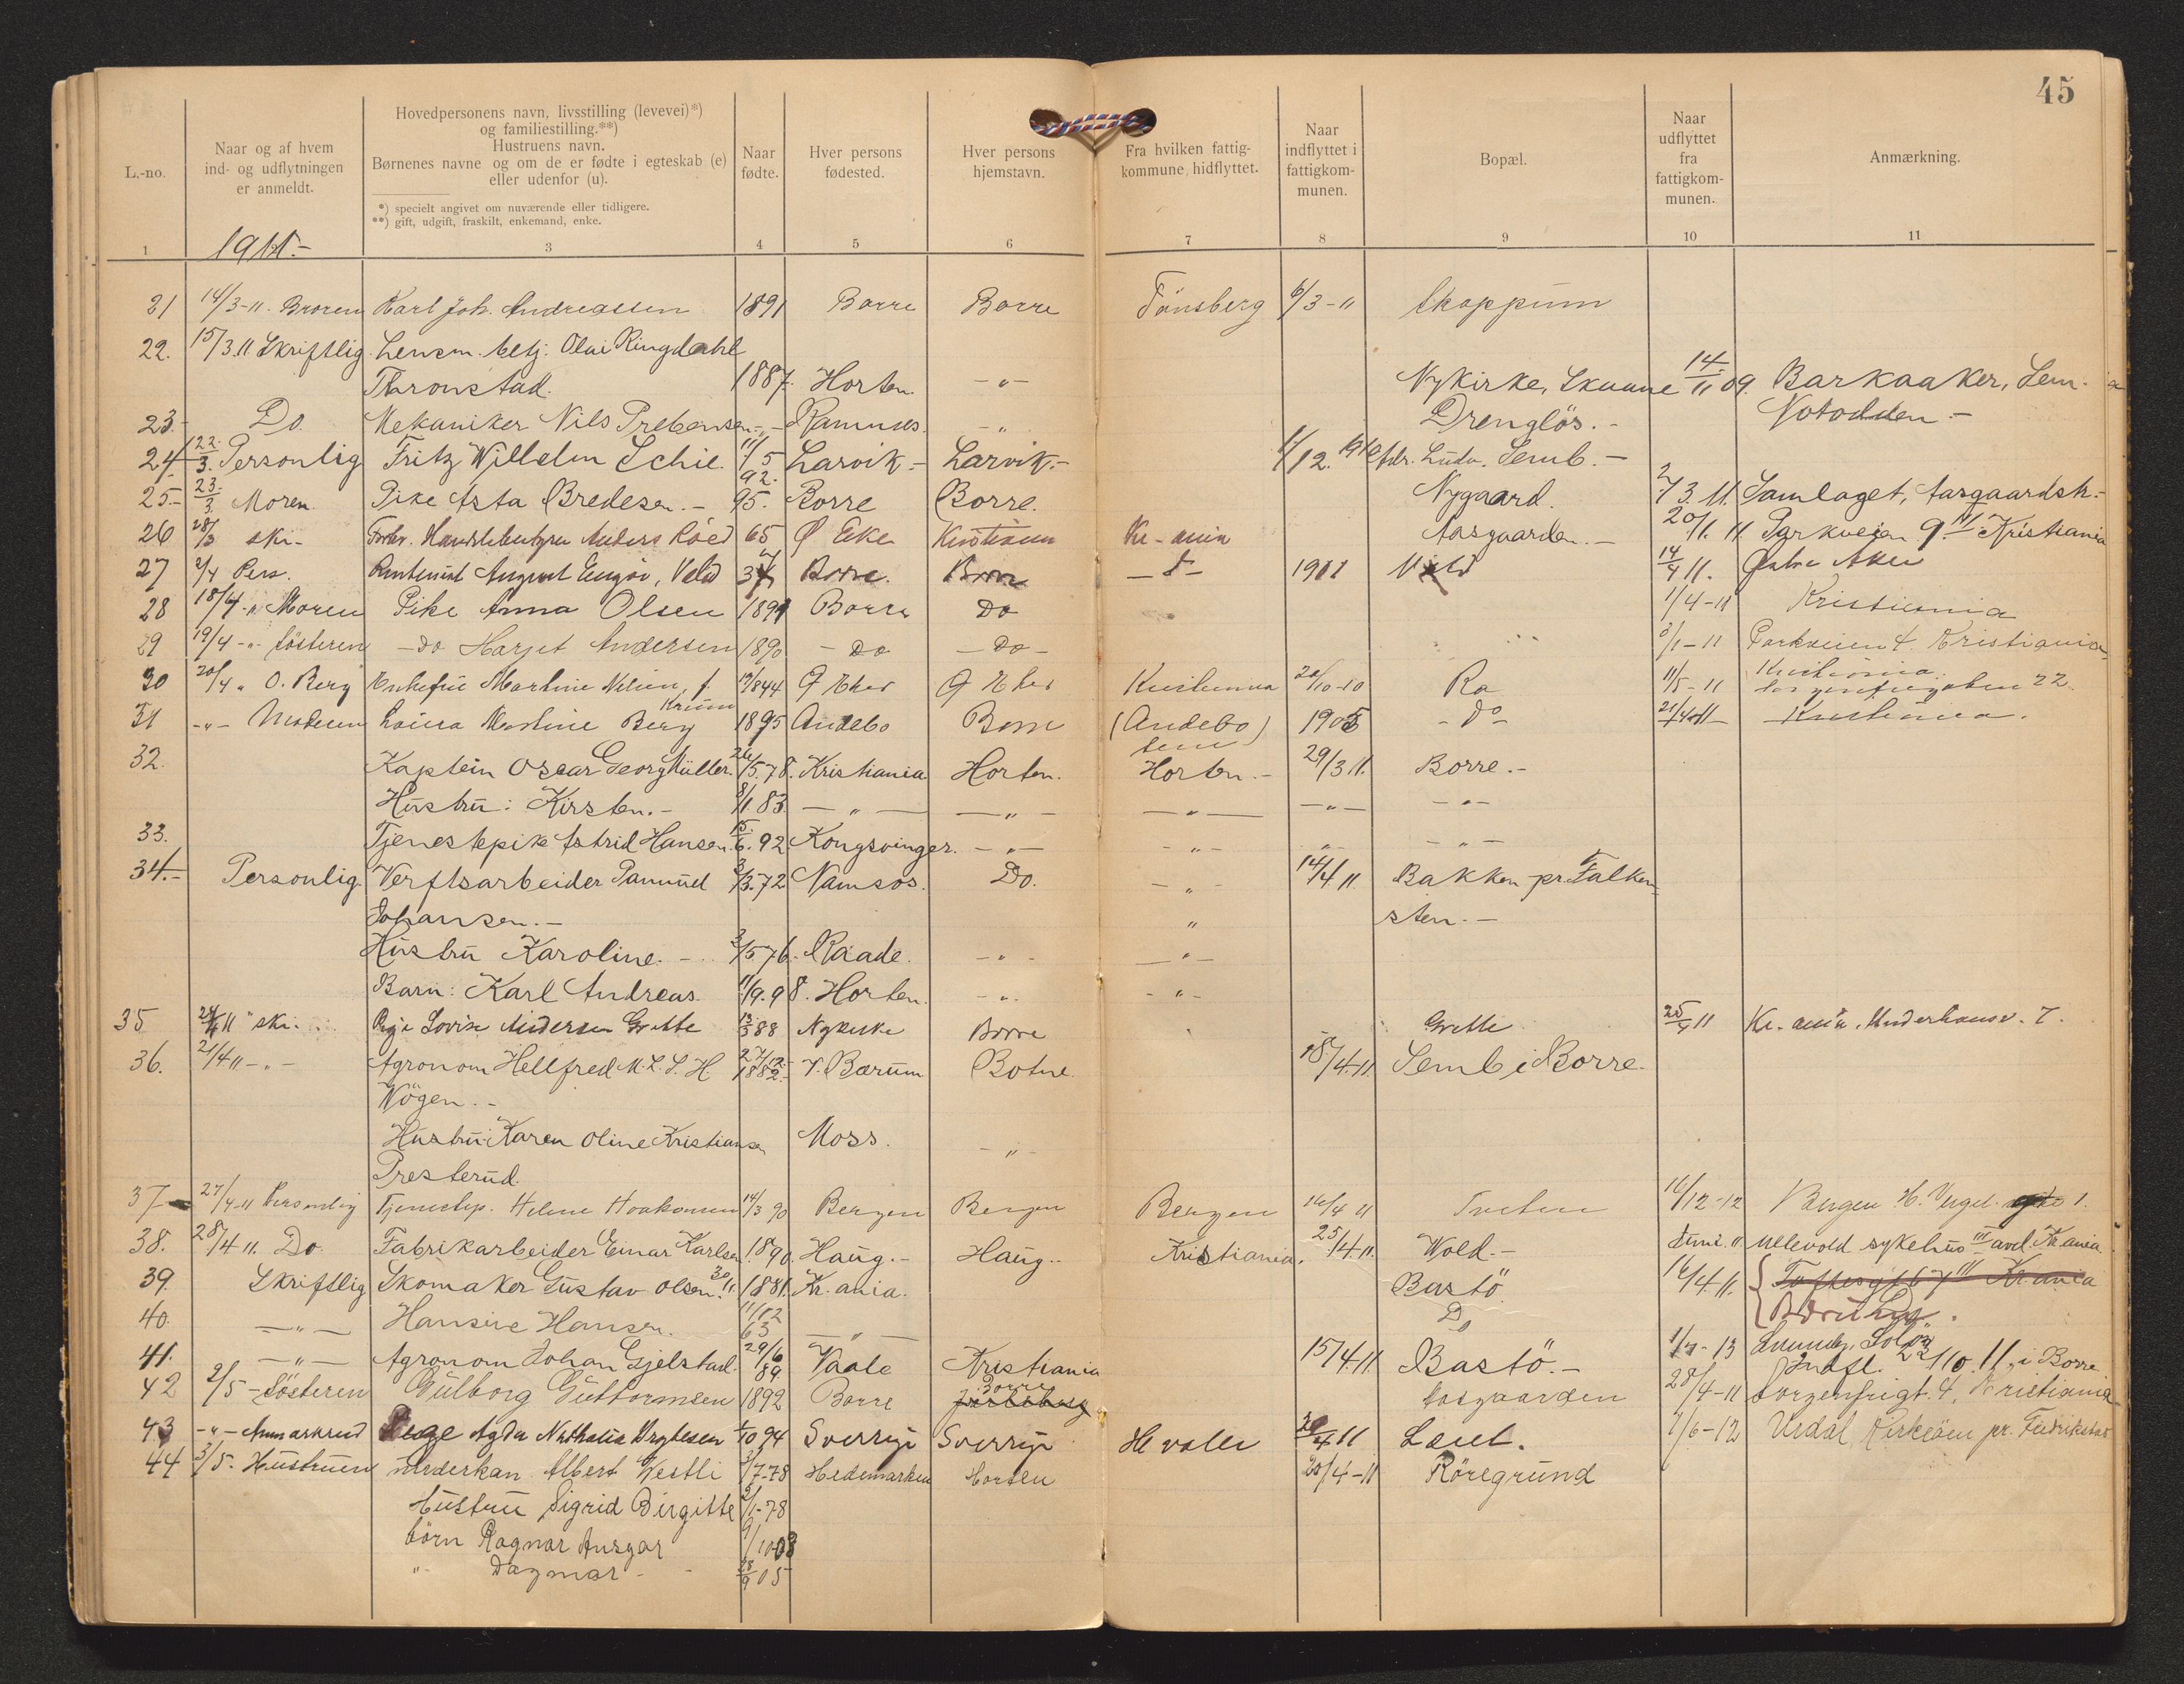 45
L.-no.
Naar og af hvem
ind- og udflytningen
er anmeldt.
Hovedpersonens navn, livsstilling (levevei)*)
og familiestilling.**)
Hustruens navn.
Børnenes navne og om de er fødte i egteskab (e)
eller udenfor (u).
*) specielt angivet om nuværende eller tidligere.
**) gift, udgift, fraskilt, enkemand, enke.
Naar
fødte.
Hver persons
fødested.
Hver persons
hjemstavn.
Fra hvilken fattig-
kommune hidflyttet.
Naar
indflyttet i
fattigkom-
munen.
Bopæl.
Naar
udflyttet
fra
fattigkom-
munen.
Anmærkning.
1 1911.- 3 4 5 6 7 8 9 10 11
21 14/3-11. Broren Karl Joh. Andreassen 1891 Borre Borre Tönsberg 6/3-11 Skoppum
22. 15/3.11 Skriftlig Lensm. betj. Olai Ringdahl
Thronstad. 1887. Horten -"- Nykirke, Skaane 14/11 09. Barkaaker, Sem.
23.- Do. Mekaniker Nils Prebensen -"- Ramnes. -" Drenglös.- Notodden -
24 22/3. Personlig Fritz Wilhelm Schie. 11/5 92. Larvik.- Larvik.- 1/12. 1910 adr. Ludv. Semb.-
25- 23/3. Moren. Pike Asta Bredesen.- 95. Borre Borre. Nygaard. 7/3.11. Samlaget, Aasgaardstr.-
26 28/3 skr- Forhv. Handelsbestyrer Anders Röed 65 Ø Eker Kristiania Kr-ania Aasgaarden.- 20/1.11 Parkveien 9 III Kristiania
27 2/4 Pers. Rentenist August Engöe, Vold Borre. Borre 1901 Vold 14/4 11. Østre Aker
28 18/4 " Moren Pike Anna Olsen 1891 Borre Do 1/4-11 Kristiania
29 19/4 -"- Søsteren -Do Harjet Andersen 1890 - Do - Do - 3/1-11 Parkveien 4. Kristiania
30 20/4 " O. Berg Enkefru Martine Nilsen, f. 19/8 44 Ø Eker Ø Eker Kristiania 20/10-10 Ra 11/5-11 Kristiania.
22.
31 -"- Moderen Laura Martine Berg 1895 Andebo Borre (Andebo) 1905 - Do - 21/4 11 Kristiania.
Sem
32. Kaptein Oscar Georg Müller. 26/5.78. Kristiania Horten. Horten.- 29/3 11. Borre.-
Hustru: Kirsten.- 8/1 83 -"- -"- -"- -"- -"-
33. Tjenestepike Astrid Hansen. 15/6. 92. Kongsvinger. -"- -"- -"- -"-
34.- Personlig. Verftsarbeider Pamüel 3/3.72 Namsos. Do. -"- 14/4 11. Bakken pr. Falken-
Johansen.- " sten.-
Hustru Karoline.- 3/5.76. Raade. -"- -"-
Barn: Karl Andreas. 11/9.98. Horten. -"- -"-
35 24/4 11 skr. Pige Lovise Andersen Grette 13/3 88 Nykirke Borre Grette 25/4 11 Kr.ania. Underhausv. 7.
36. 21/4 11 -"- Agronom Hellfred M. L. S. H 27/12 1882.- V. Bærum Botne. 18/4.11. Semb i Borre.
Wögen.-
Hustru: Karen Oline Kristiansen Moss. -"-
Presterud.
37- 27/4-11 Personlig Tjenestep. Helene Haakonsen 14/3 90 Bergen Bergen Bergen 16/4 11 Tveten 16/12-12 Bergen H. Vergel. 1.
38. 28/4 11. Do. Fabrikarbeider Einar Karlsen 1890. Haug.- Haug.. Kristiania. 25/4 11. Wold.- Juni. 11 Ullevold sykehus III avd. Kr.ania
39. Skriftlig Skomaker Gustav Olsen. 30/11 1881. Kr. ania. Bastö. 16/4.11. Toftesgt 67 III Kr.ania
40. -"- Hansine Hansen. 11/12 63 -"- Do
41. -"- Agronom Johan Gjelstad. 29/6 89. Vaale Kristiania 15/4 11. Bastö.- 13 Indfl. 22/10.11. i Borre
42 2/5- Søsteren Gulborg Guttormsen 1892 Borre Borre Aasgaarden 28/4-11 Sorgenfrigt. 4, Kristiania
43 -"- Anmarkrud Pige Agda Nathalia 1/10 94 Sverrige Sverrige Hvaler 30/4 11 Laul. 1/6-12 Urdal, Kirkeöen pr. Fredrikstad
44 3/5. Hustruen underkan. Albert Westli 1/7-78 Hedemarken Horten 20/4-11 Röregrund
Hustru Sigrid Birgitte 2/1-78
börn Ragnar Ansgar 9/10-03
" Dagmar- 28/9 05